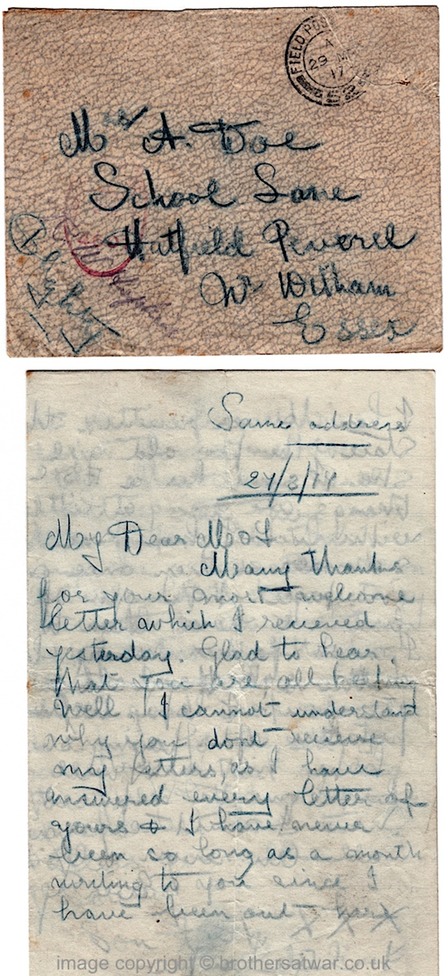 FIELD POS
A
29 MR
17
Mrs A. Doe
School Lane
Hatfield Peverel
Nr Witham
Essex
Same address
27/3/17
My Dear M & F
Many thanks
for your most welcome
letter which I recieved
yesterday. Glad to hear
that you are all keeping
Well I cannot understand
why you dont receive
my letters, as I have
answered every letter of
yours & I have never
been so long as a month
writing to you since I
have been out here
image copyright © brothersatwar.co.uk